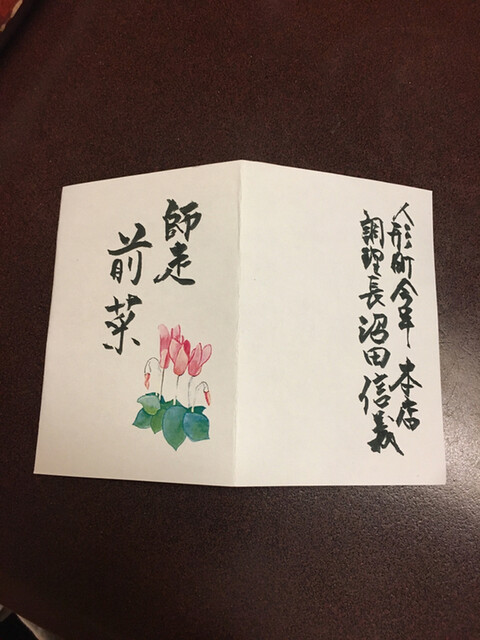 師走
前菜
人形町今半 本店
調理長 沼田信義